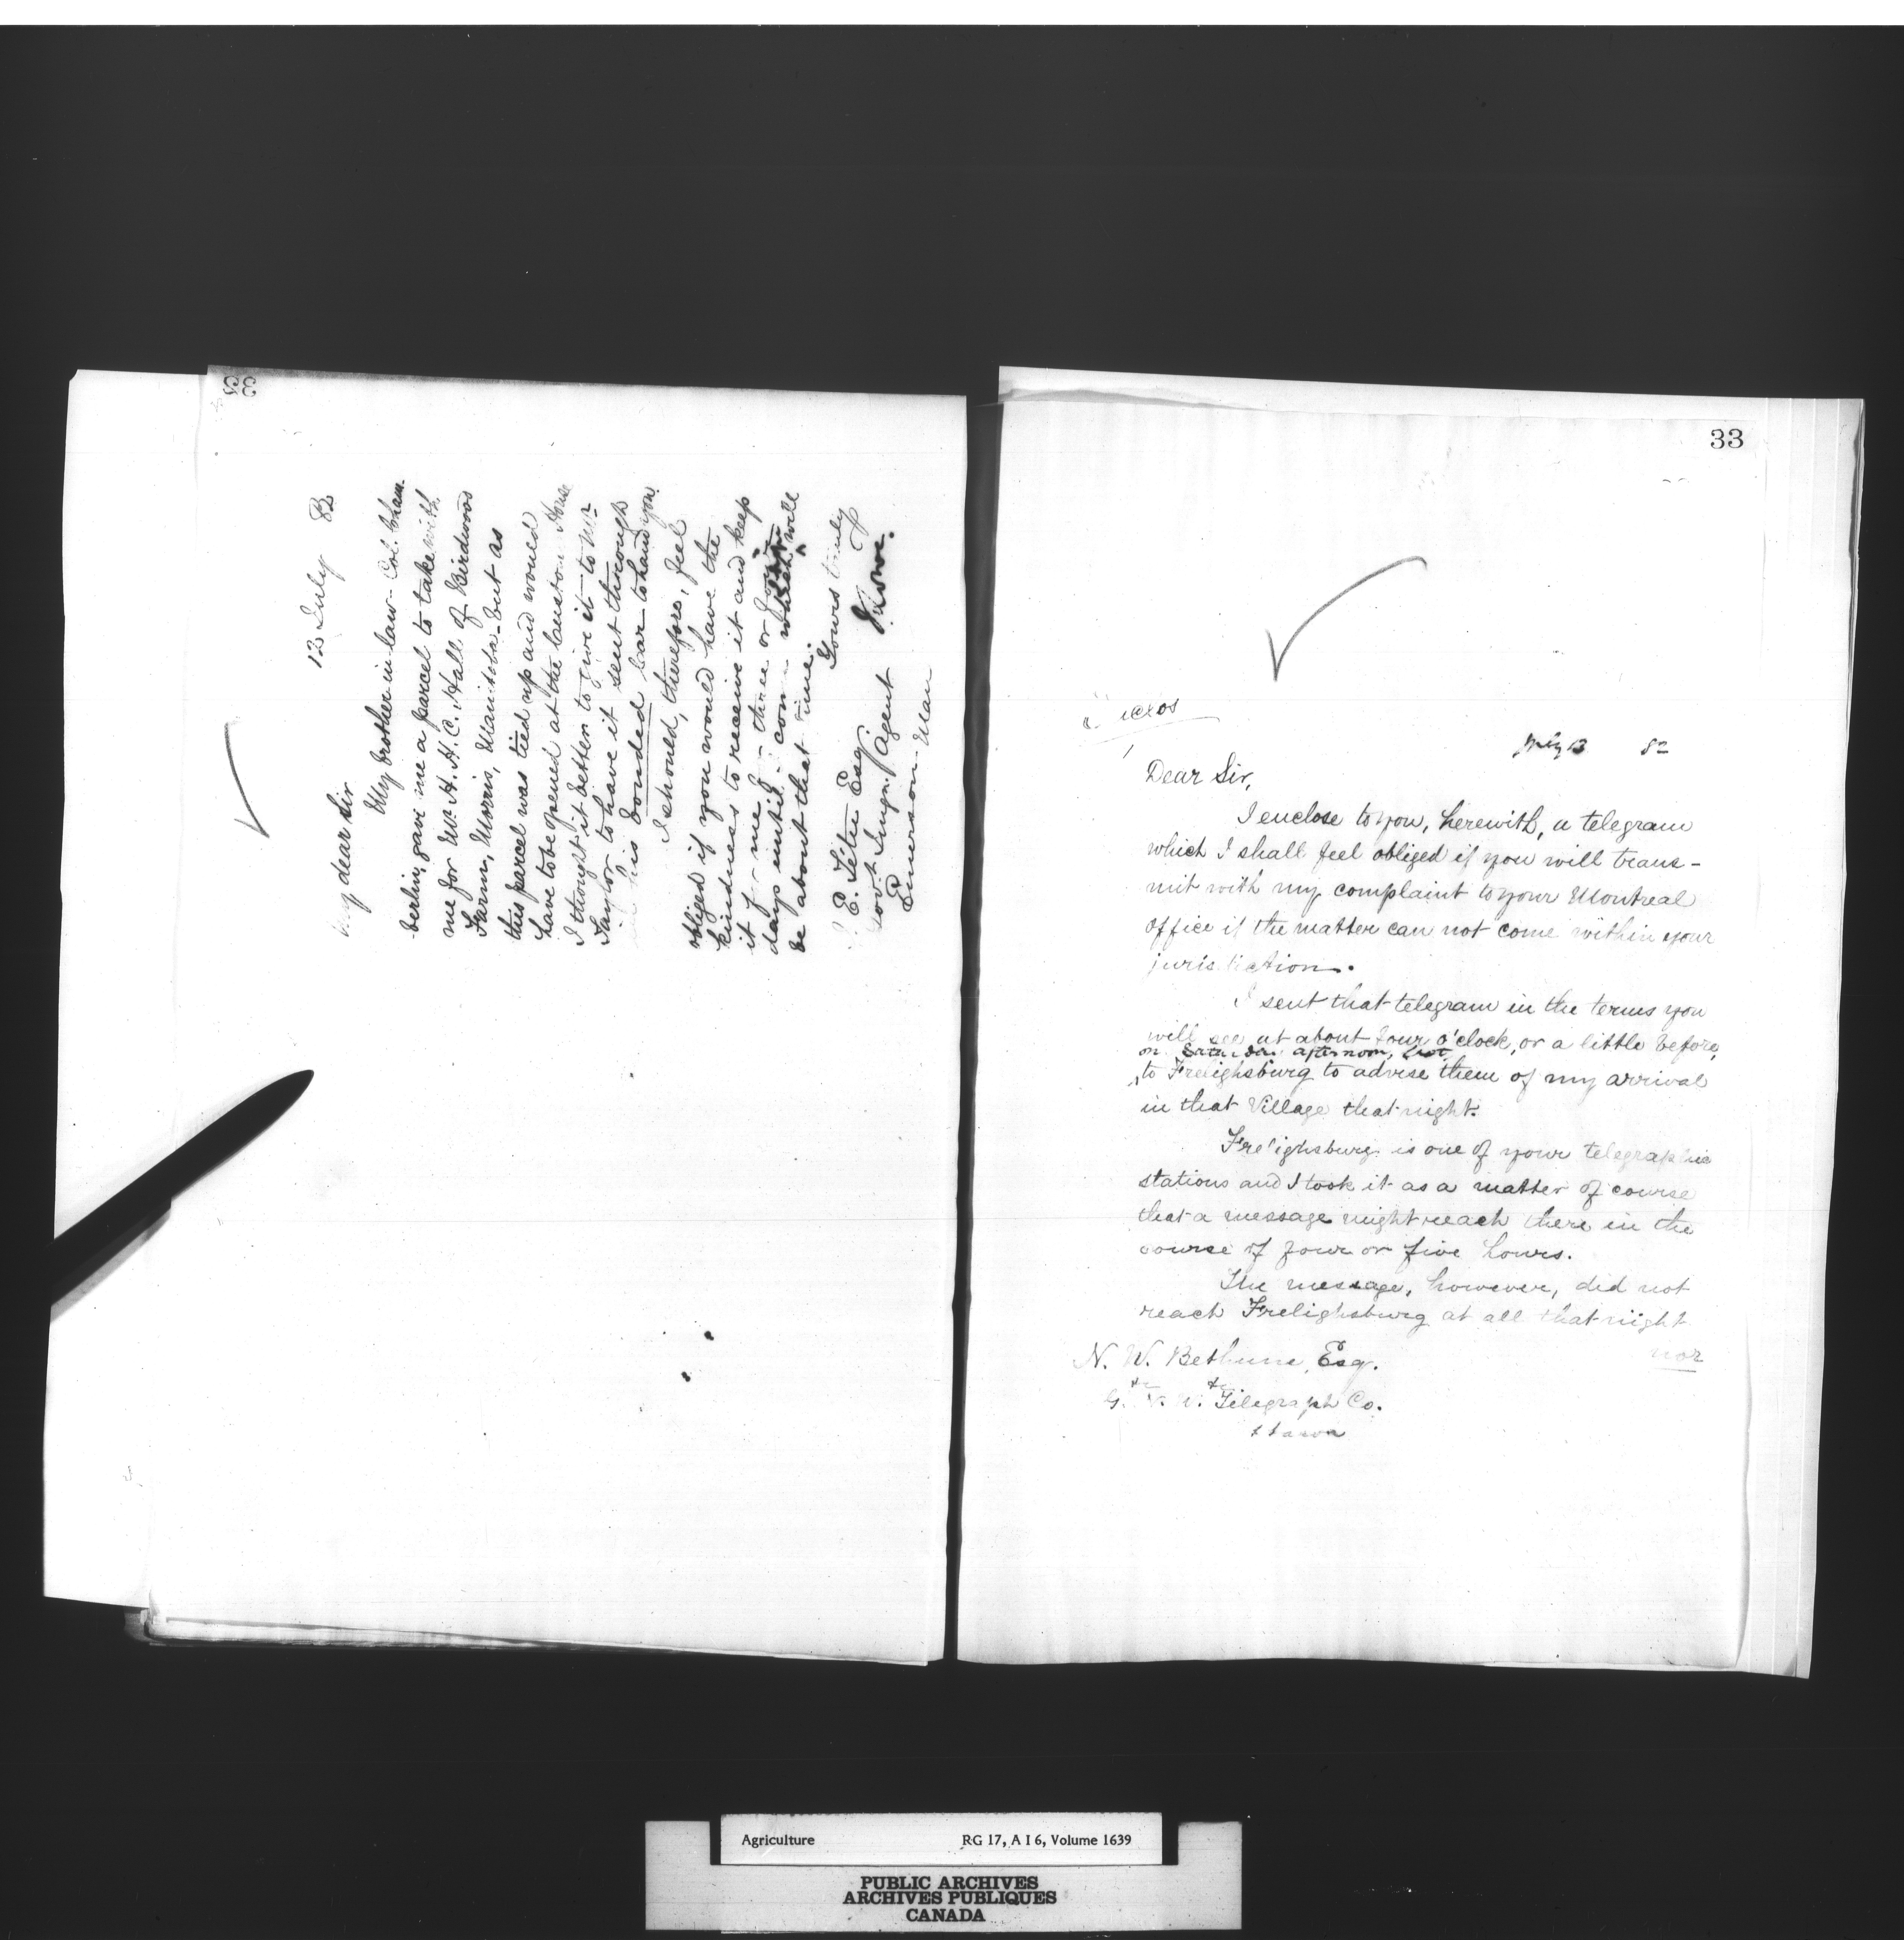 32
12 July 82
My dear Sir
My brother-in-law- Col. Cham-
berlin, gave me a parcel to take with
me for Mr. H. H. C. Hall of Birdwood
Farm, Morris, Manitoba - but as
this parcel was tied up and would
have to be opened at the Custom House
I thought it better to give it to Mr
Taylor to have it sent through
in his bonded Car - to hand you.
I should, therefore, feel
obliged if you would have the
kindness to receive it and keep
it for me three or four
days until I come which will
be about that time.
Yours truly
J. Lowe.
E. Têtu Esq.
Govt Immgn. Agent
Emerson - Man
33
July 13 82
Dear Sir,
I enclose to you, herewith, a telegram
which I shall feel obliged if you will trans-
mit with my complaint to your Montreal
Office if the matter can not come within your
jurisdiction.
I sent that telegram in the terms you
will see at about four o'clock, or a little before,
on Saturday afternoon, last,
to Frelighsburg to advise them of my arrival
in that Village that night.
Frelighsburg is one of your telegraphic
stations and I took it as a matter of course
that a message might reach there in the
course of four or five hours.
The message, however, did not
reach Frelighsburg at all that night
nor
N. W. Bethune, Esq.
G. N. W. Telegraph Co.
Ottawa
Agriculture RG 17, A I 6, Volume 1639
PUBLIC ARCHIVES
ARCHIVES PUBLIQUES
CANADA